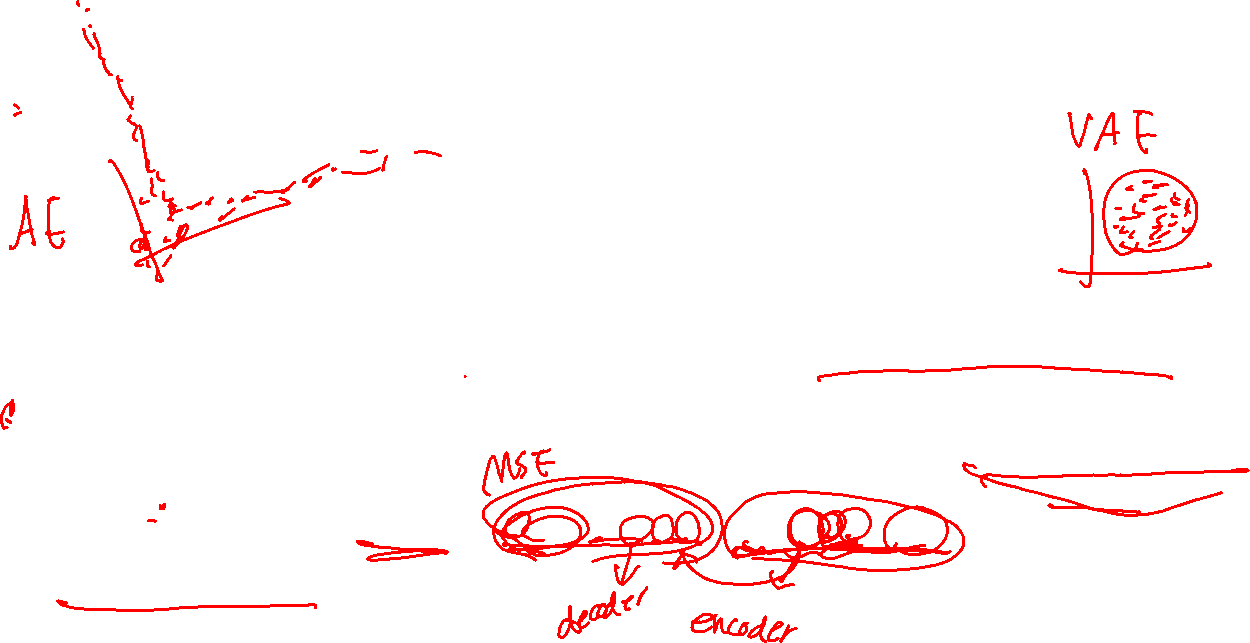 VAE
AE
MSE
decoder
encoder